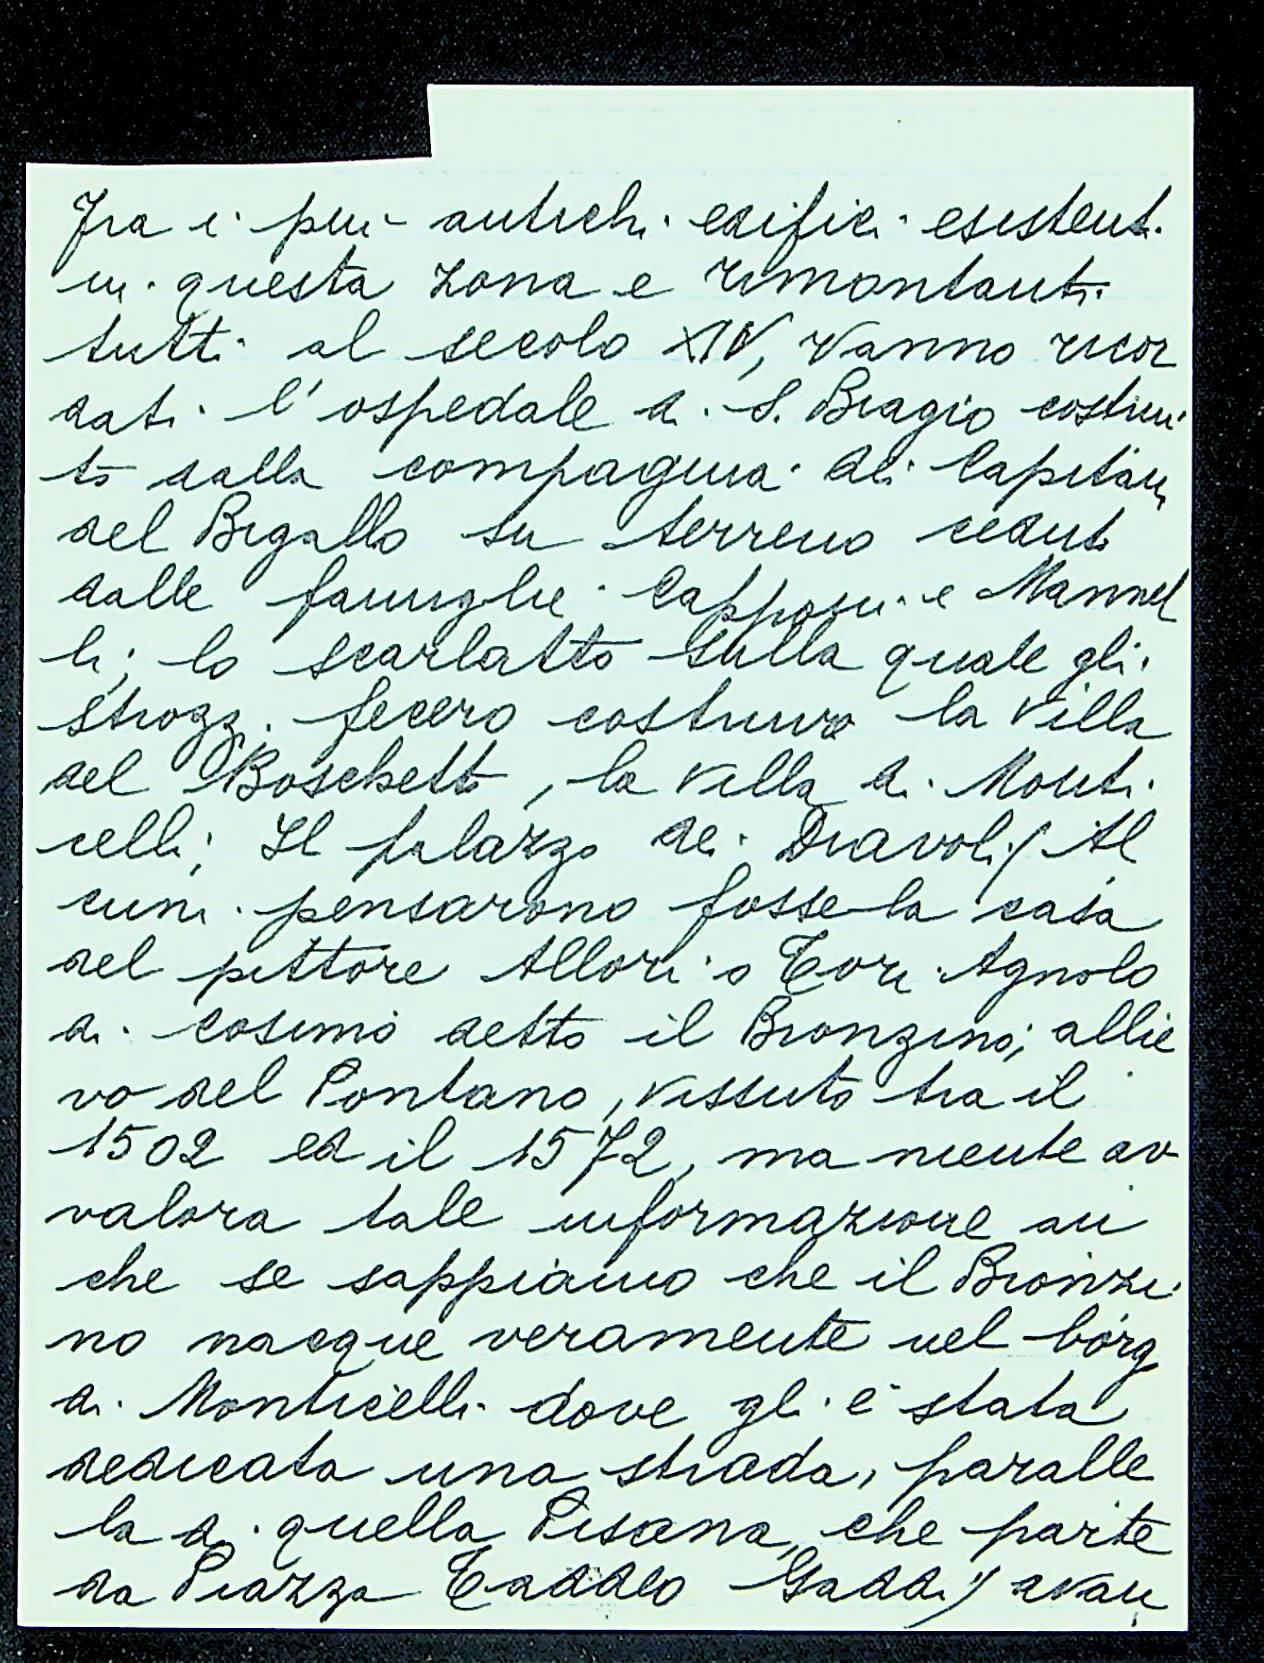 Fra i più antichi edifici esistenti
in questa zona e rimontanti
tutti al secolo XIV, vanno ricor
dati l'ospedale di S. Biagio costrui
to dalla compagnia dei Capitani
del Bigallo su terreno ceduto
dalle famiglie Capponi e Mannel
li; lo scarlatto sulla quale gli
Strozzi fecero costruire la villa
del Boschetto, la villa di Monti
celli; Il palazzo dei Diavoli (Al
cuni pensarono fosse la casa
del pittore Allori o Tori Agnolo
di Cosimo detto il Bronzino; allie
vo del Pontano, vissuto tra il
1502 ed il 1572, ma niente av
valora tale informazione an
che se sappiamo che il Bronzi
no nacque veramente nel borg
di Monticelli dove gli è stata
dedicata una strada, paralle
la a quella Pisana, che parte
da Piazza Taddeo Gaddi) avan